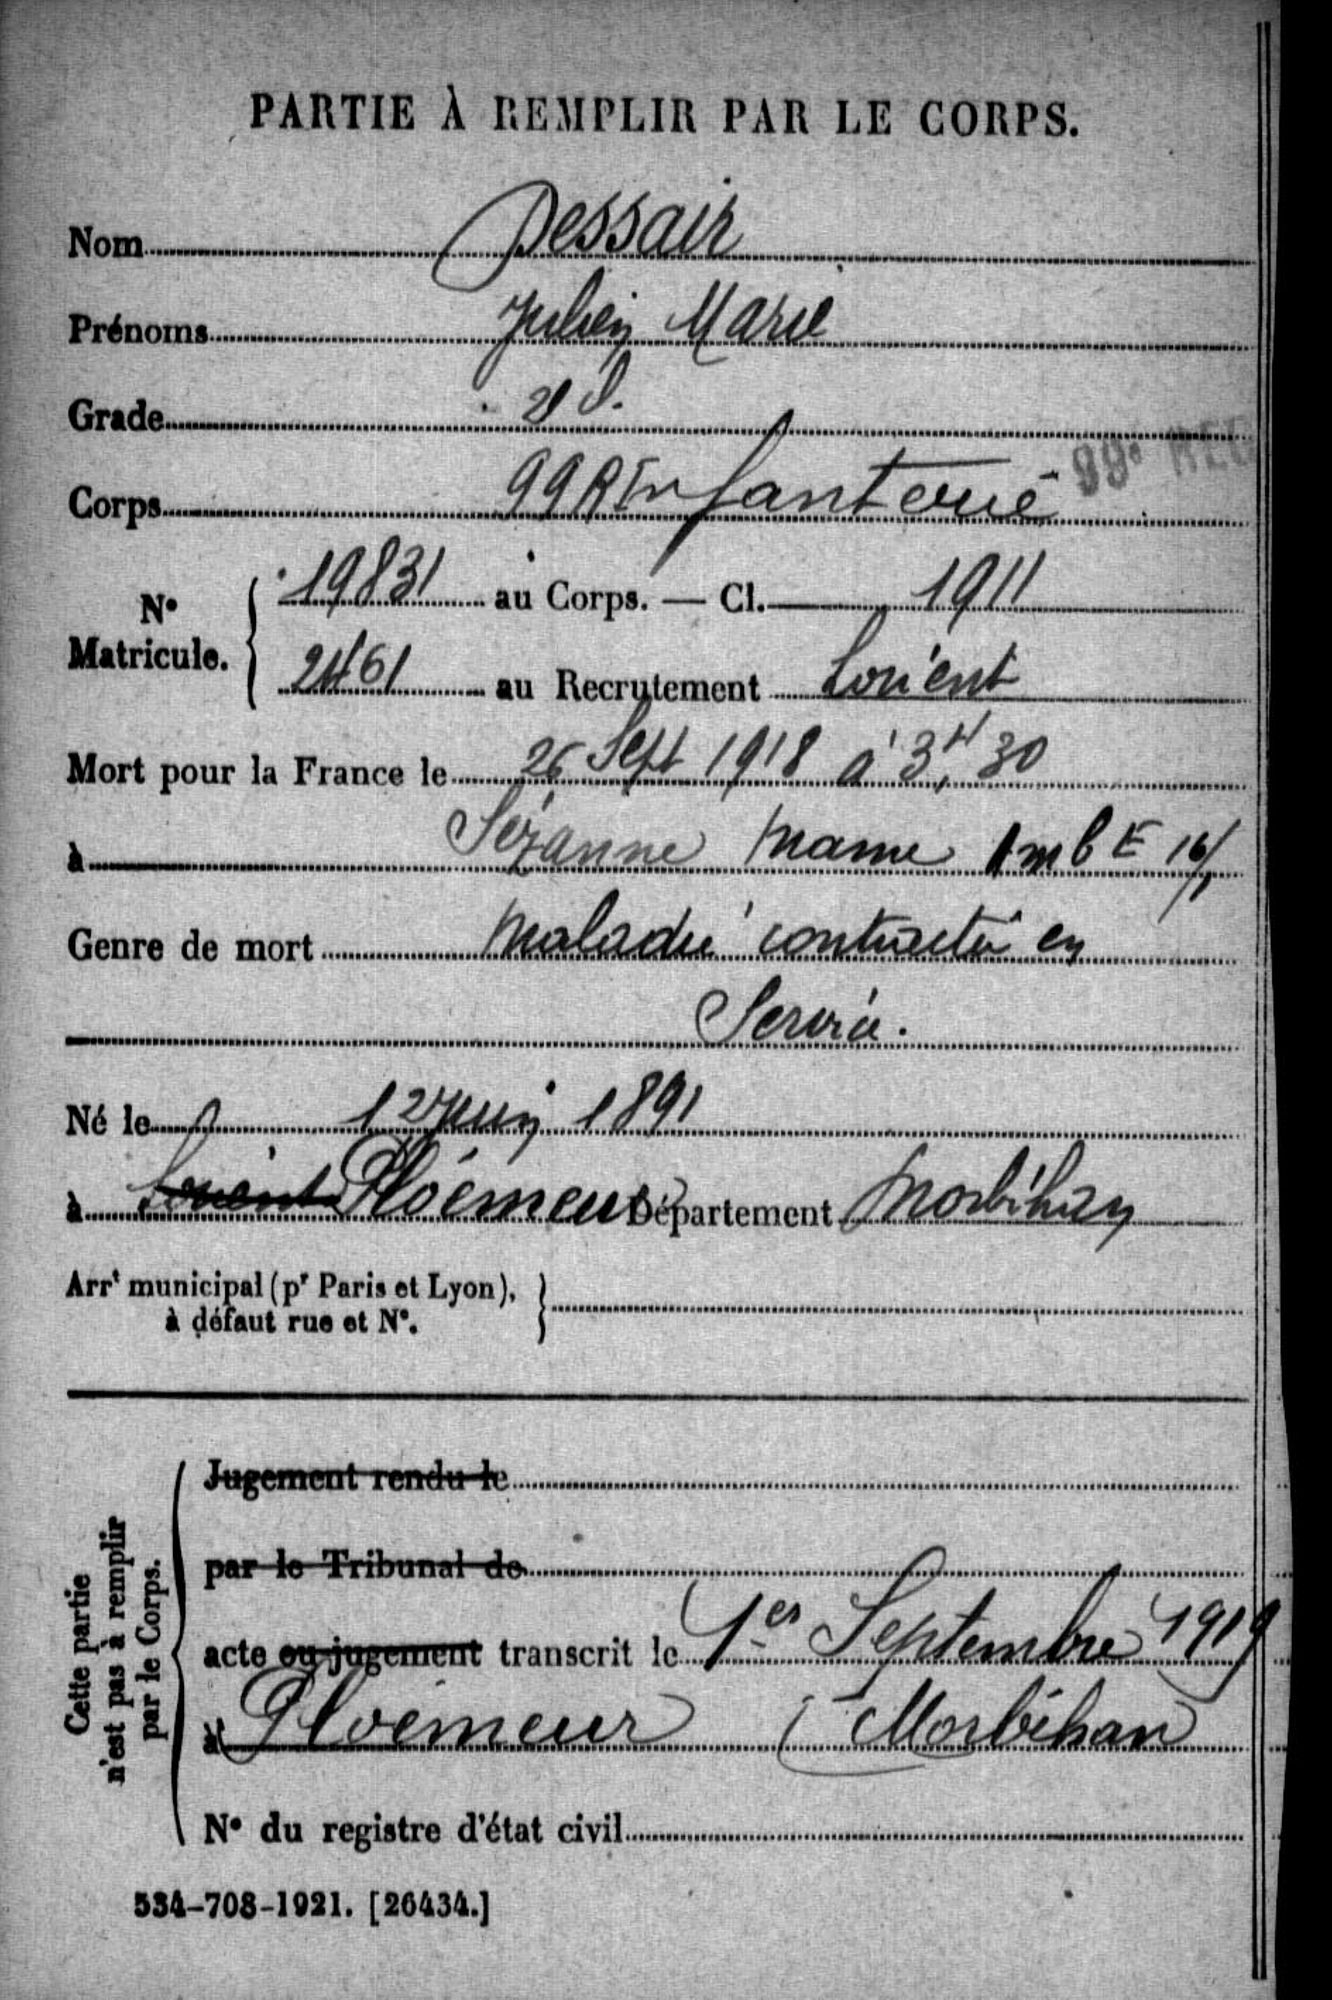 PARTIE À REMPLIR PAR LE CORPS.
Nom Dessair
Prénoms Julien Marie
Grade
Corps 99 R Infanterie 99e REG
N° Matricule. 19831 au Corps. — Cl. 1911
2461 au Recrutement Lorient
Mort pour la France le 26 Sept 1918 à 3H 30
à Sézanne Marne Amb E 16/1
Genre de mort Maladie contractée en
Service.
Né le 12 Juin 1891
à Lorient Ploemeur Département Morbihan
Arrt municipal (pr Paris et Lyon),
à défaut rue et N°.
Cette partie
n'est pas à remplir
par le Corps.
Jugement rendu le
par le Tribunal de
acte ou jugement transcrit le 1er Septembre 1919
à Ploemeur (Morbihan
N° du registre d'état civil
534-708-1921. [26434.]